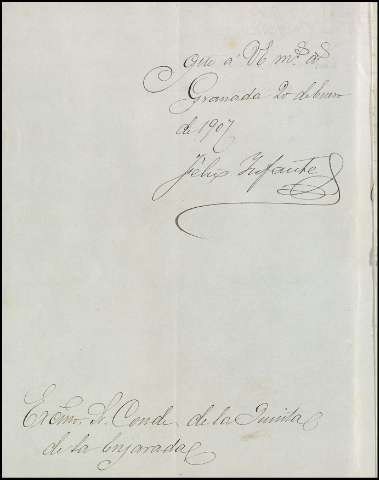 gue á VE m.s a.s
Granada 20 de Enero
de 1907
Félix Infante
Exmo. Sr. Conde de la Quinta
de la Enjarada